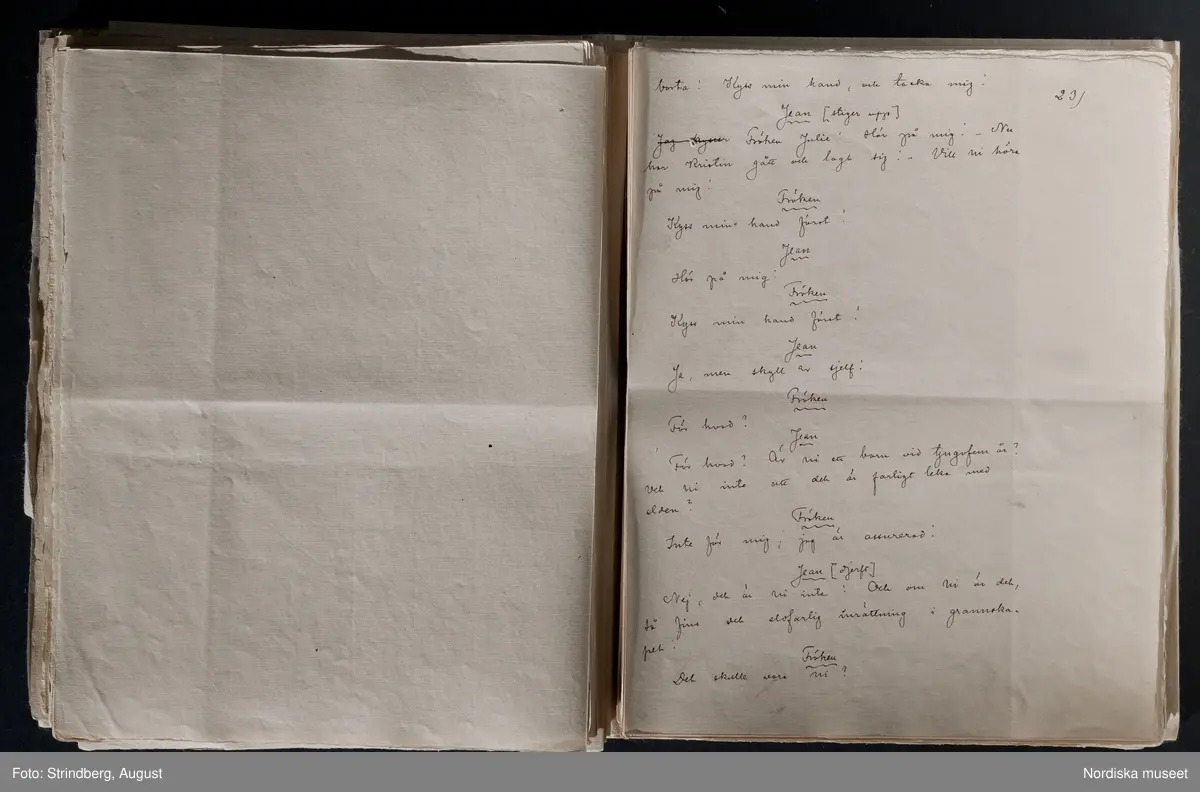 borta! Kyss min hand, och tacka mig!
23/
Jean [stiger upp]
Jag kysser Fröken Julie! Hör på mig! – Nu
har Kristin gått och lagt sig! – Vill ni höra
på mig!
Fröken
Kyss min hand först!
Jean
Hör på mig!
Fröken
Kyss min hand först!
Jean
Ja, men skyll er sjelf!
Fröken
För hvad?
Jean
För hvad? Är ni ett barn vid tjugofem år?
Vet ni inte att det är farligt leka med
elden?
Fröken
Inte för mig; jag är assurerad!
Jean [djerft]
Nej, det är ni inte! Och om ni är det,
så fins det eldfarlig inrättning i grannska-
pet!
Fröken
Det skulle vara ni?
Foto: Strindberg, August
Nordiska museet